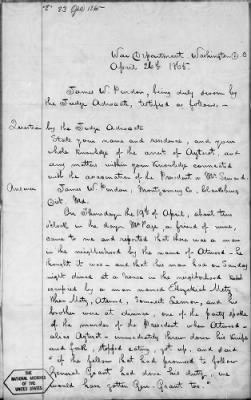 "S" 83 (JAO) 1865
War Department Washington D.C
April 26th 1865.
James W. Purdom, being duly sworn by
the Judge Advocate, testified as follows.—
Question by the Judge Advocate
State your name and residence, and your
whole knowledge of the arrest of Atzerot, and
any matters within your knowledge connected
with the assassination of the President or Mr Seward.
Answer James W. Purdom, Montgomery Co. Clarksburg
Md.
On Thursday the 19th of April, about ten
o'clock in the day, Mr Page, a friend of mine,
came to me and reported that there was a man
in the neighborhood by the name of Atzerod — he
thought it was — and that his man had on Sunday
dined at a house in the neighborhood
occupied by a man named Hezekiel Metz
When Metz, Atzerod, Somerset Leamon, and his
brother were at dinner, one of the party spoke
of the murder of the President when Atzerod —
alias Atzerot — immediately threw down his knife
and fork, stopped eating, got up, and said
"if the fellow that had promised to follow
General Grant had done his duty, we
would have gotten Gen. Grant too."
THE
NATIONAL ARCHIVES
OF THE
UNITED STATES